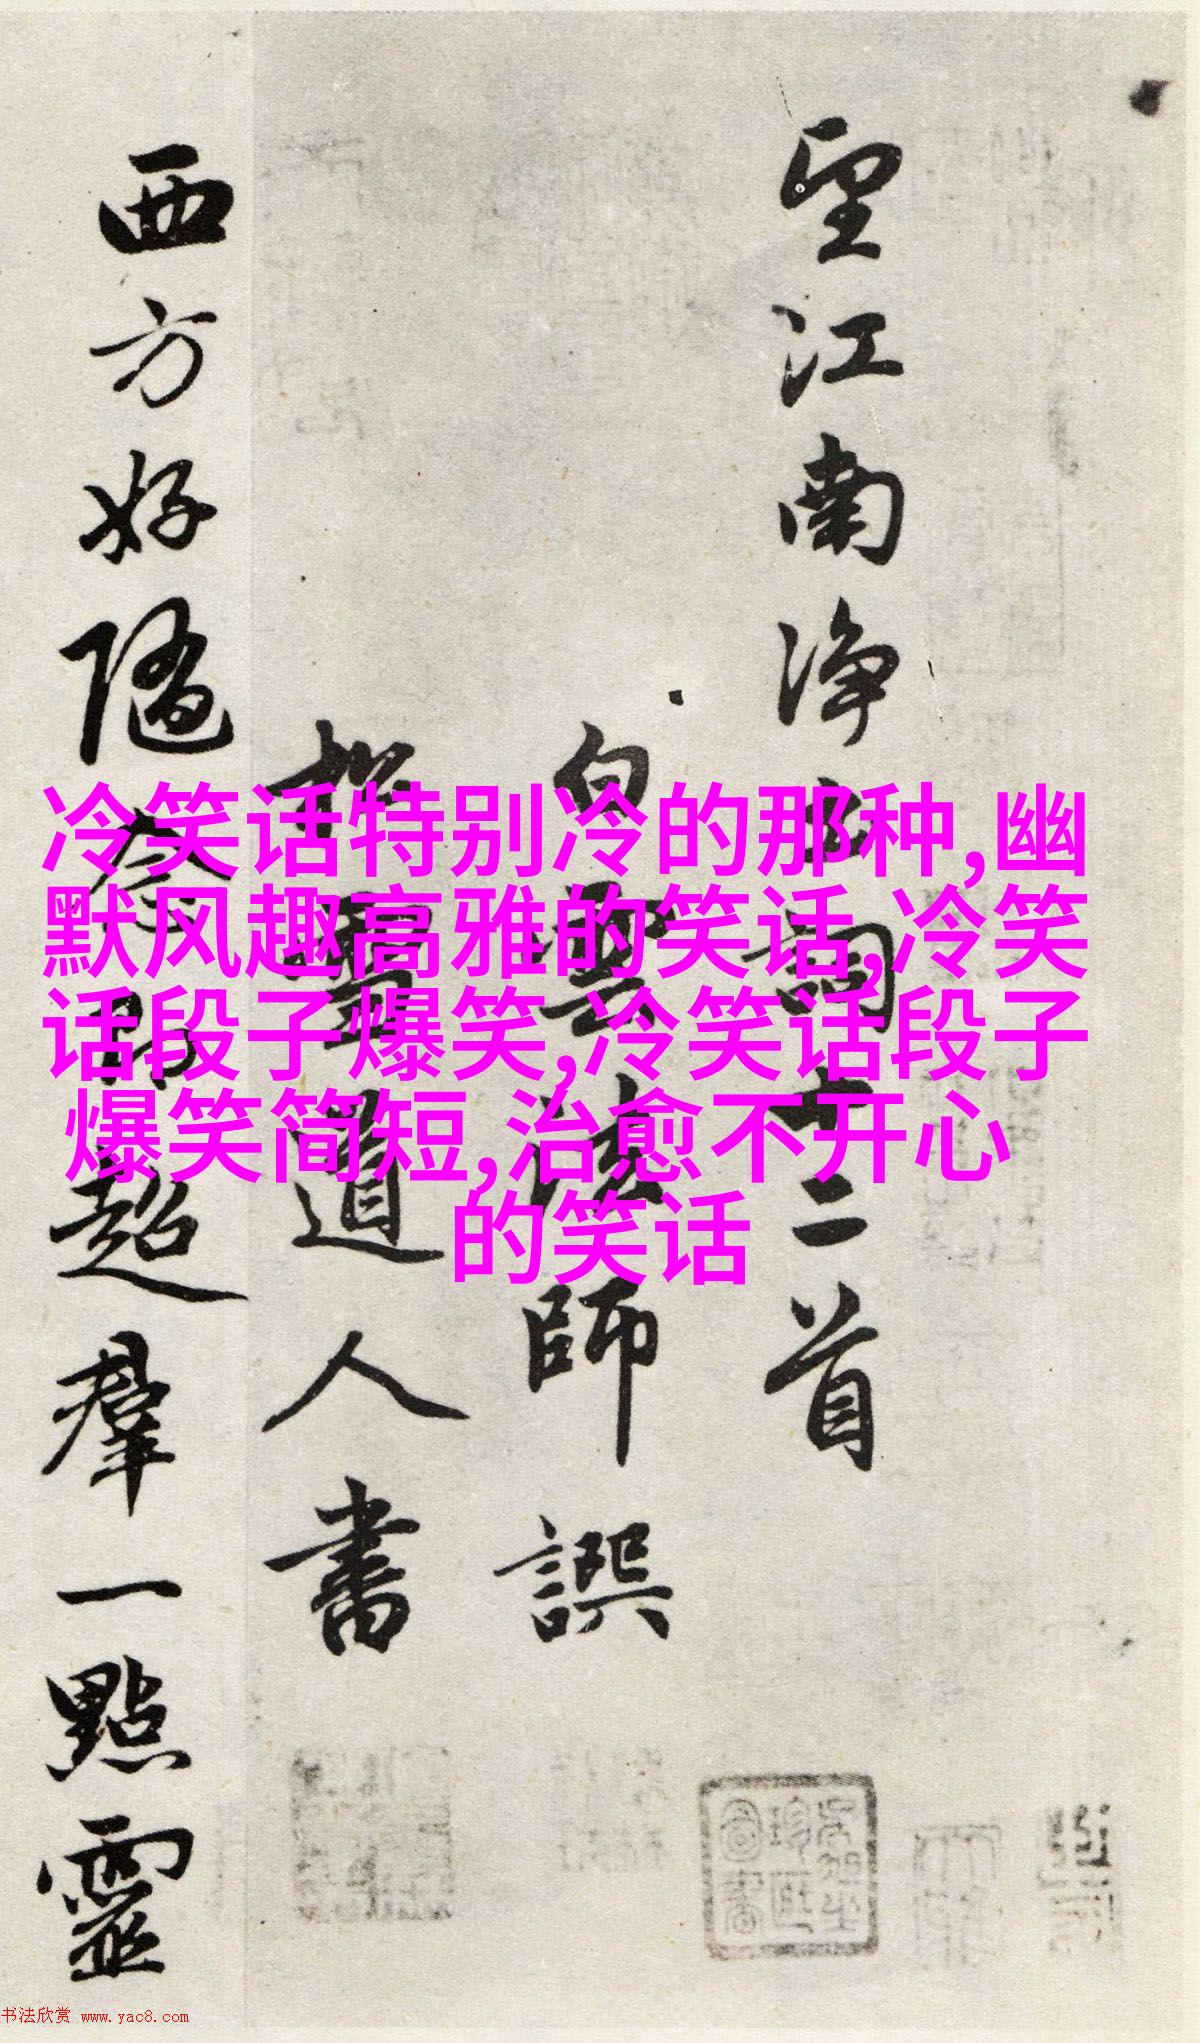 望江南净土詞十二首
白雲法師譔
松雪道人書
西方好隨念即超羣一點靈
冷笑话特别冷的那种,幽
默风趣高雅的笑话,冷笑
话段子爆笑,冷笑话段子
爆笑简短,治愈不开心
的笑话
书法欣赏 www.yac8.com